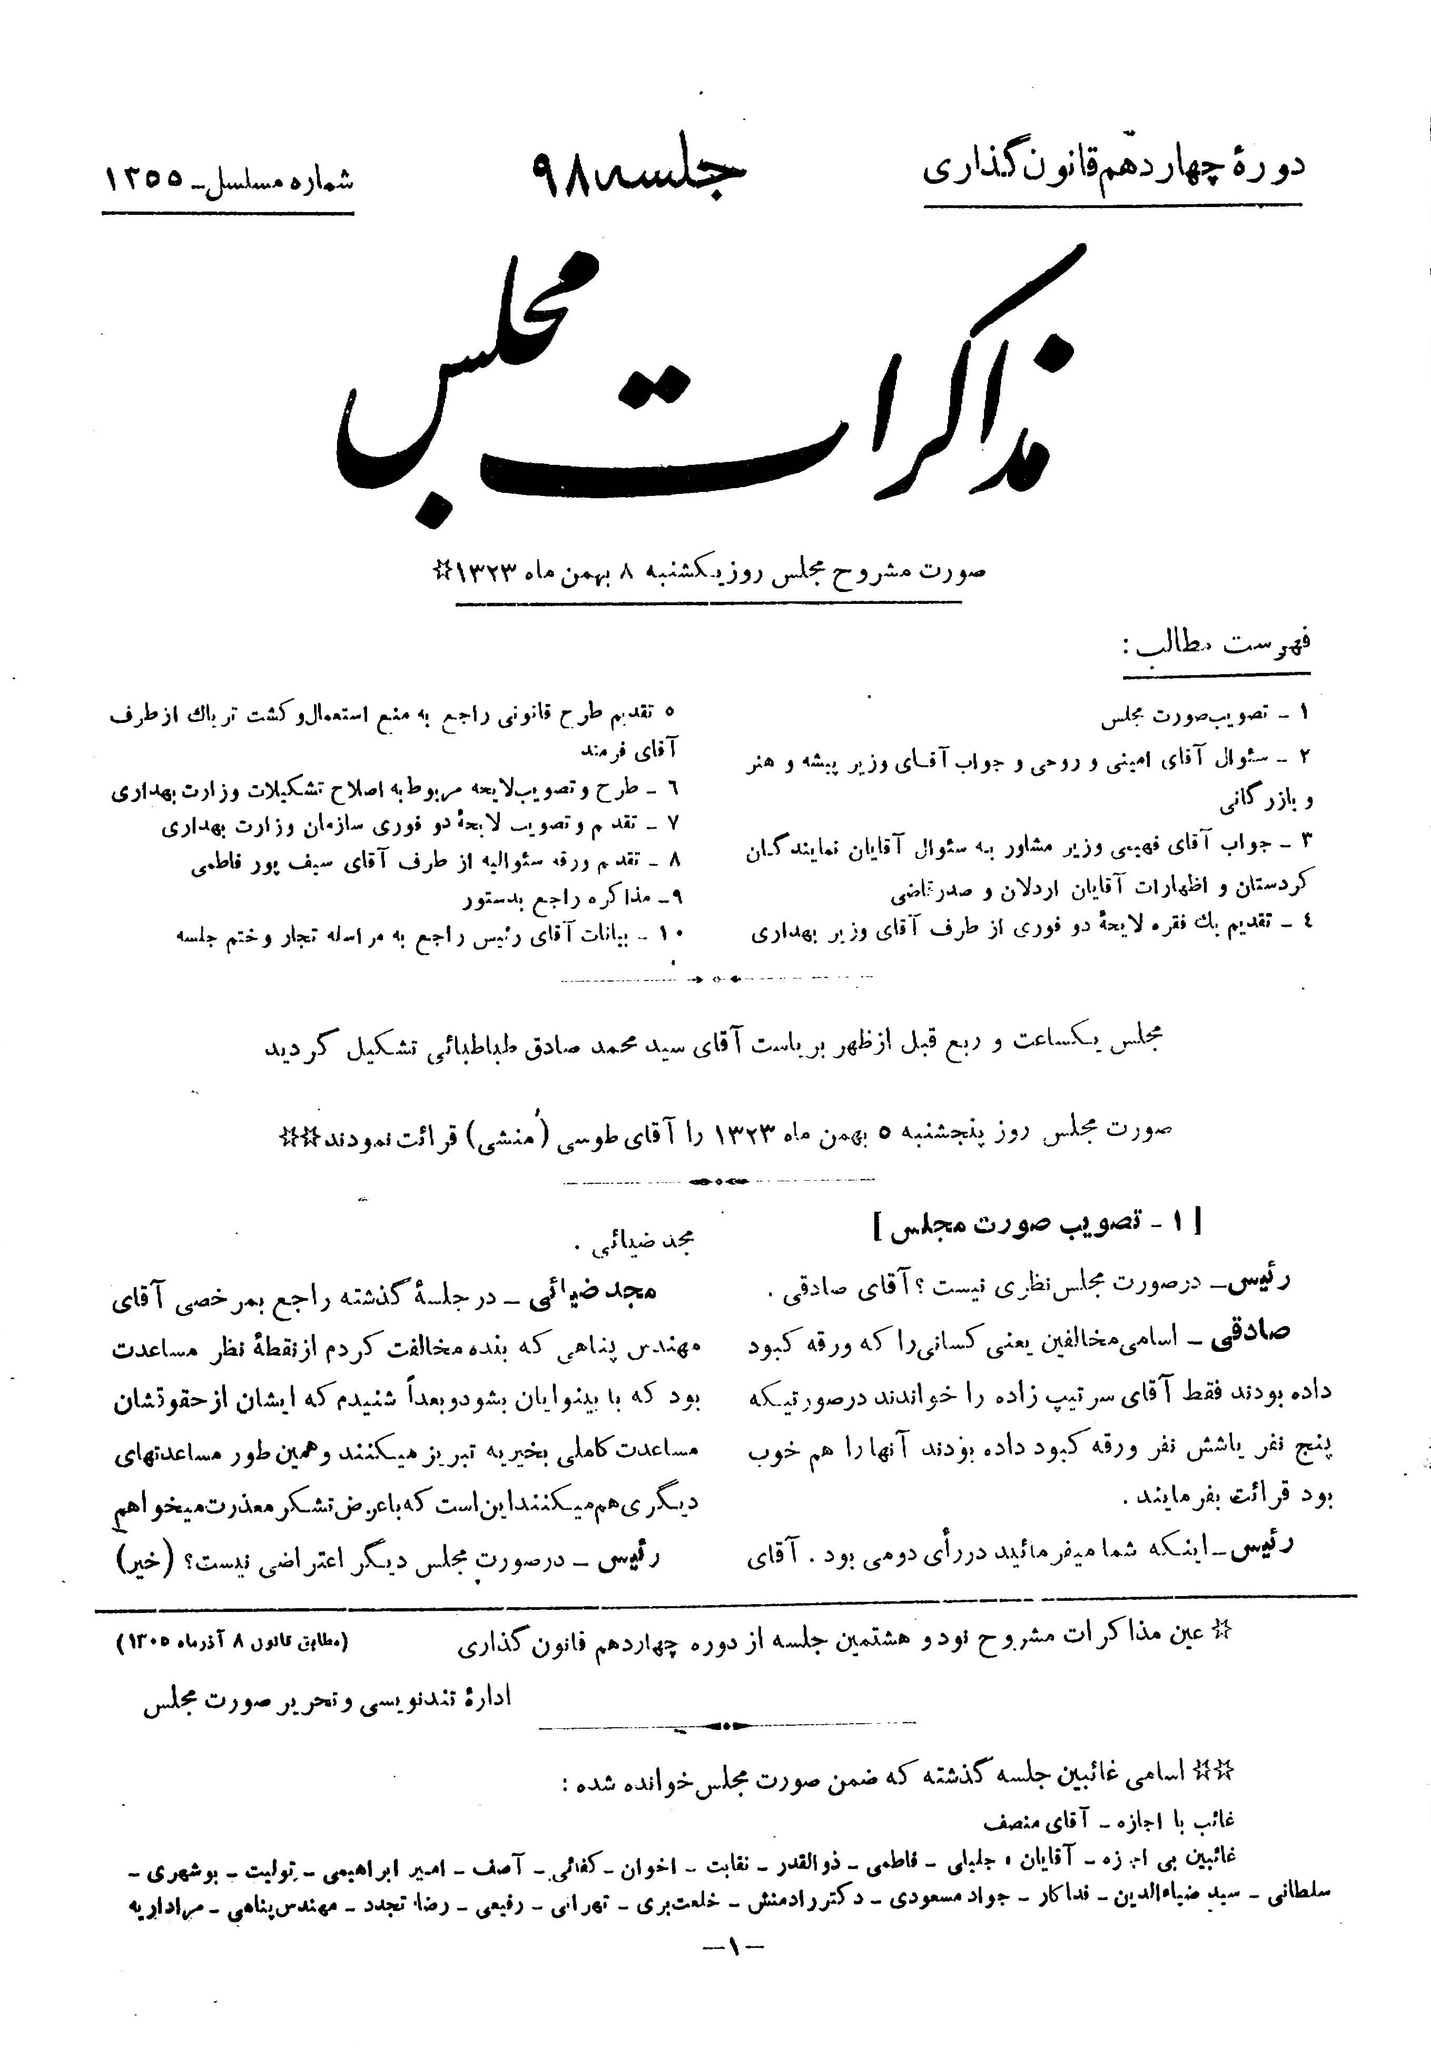 دورهٔ چهاردهم قانون‌گذاری
جلسه ۹۸
شماره مسلسل ـ ۱۲۵۵
مذاکرات مجلس
صورت مشروح مجلس روز یکشنبه ۸ بهمن ماه ۱۳۲۳☆
فهرست مطالب :
۱ ـ تصویب صورت مجلس
۲ ـ سئوال آقای امینی و روحی و جواب آقای وزیر پیشه و هنر
و بازرگانی
۳ ـ جواب آقای فهیمی وزیر مشاور به سئوال آقایان نمایندگان
کردستان و اظهارات آقایان اردلان و صدرقاضی
٤ ـ تقدیم یك فقره لایحهٔ دو فوری از طرف آقای وزیر بهداری
٥ تقدیم طرح قانونی راجع به منع استعمال و کشت تریاك از طرف
آقای فرمند
٦ ـ طرح و تصویب لایحه مربوط به اصلاح تشکیلات وزارت بهداری
۷ ـ تقدیم و تصویب لایحهٔ دو فوری سازمان وزارت بهداری
۸ ـ تقدیم ورقه سئوالیه از طرف آقای سیف پور فاطمی
۹ـ مذاکره راجع بدستور
۱۰ ـ بیانات آقای رئیس راجع به مراسله تجار و ختم جلسه
مجلس یکساعت و ربع قبل از ظهر بریاست آقای سید محمد صادق طباطبائی تشکیل گردید
صورت مجلس روز پنجشنبه ٥ بهمن ماه ۱۳۲۳ را آقای طوسی (منشی) قرائت نمودند☆☆
[ ۱ ـ تصویب صورت مجلس ]
رئیس ـ درصورت مجلس نظری نیست ؟ آقای صادقی .
صادقی ـ اسامی مخالفین یعنی کسانی را که ورقه کبود
داده بودند فقط آقای سرتیپ زاده را خواندند درصورتیکه
پنج نفر یاشش نفر ورقه کبود داده بودند آنها را هم خوب
بود قرائت بفرمایند .
رئیس ـ اینکه شما میفرمائید دررأی دومی بود . آقای
مجد ضیائی .
مجد ضیائی ـ در جلسهٔ گذشته راجع بمرخصی آقای
مهندس پناهی که بنده مخالفت کردم از نقطهٔ نظر مساعدت
بود که با بینوایان بشود و بعداً شنیدم که ایشان از حقوقشان
مساعدت کاملی بخیریه تبریز میکنند و همین طور مساعدتهای
دیگری هم میکنند این است که با عرض تشکر معذرت میخواهم
رئیس ـ درصورت مجلس دیگر اعتراضی نیست؟ (خیر)
☆ عین مذاکرات مشروح نود و هشتمین جلسه از دوره چهاردهم قانون گذاری
(مطابق قانون ۸ آذرماه ۱۳۰۵)
ادارهٔ تندنویسی و تحریر صورت مجلس
☆☆ اسامی غائبین جلسه گذشته که ضمن صورت مجلس خوانده شده :
غائب با اجازه ـ آقای منصف
غائبین بی اجازه ـ آقایان : جلیلی ـ فاطمی ـ ذوالقدر ـ نقابت ـ اخوان ـ کفائی ـ آصف ـ امیر ابراهیمی ـ تولیت ـ بوشهری ـ
سلطانی ـ سید ضیاءالدین ـ فداکار ـ جواد مسعودی ـ دکتر رادمنش ـ خلعت‌بری ـ تهرانی ـ رفیعی ـ رضا تجدد ـ مهندس پناهی ـ مراداریه
—۱—